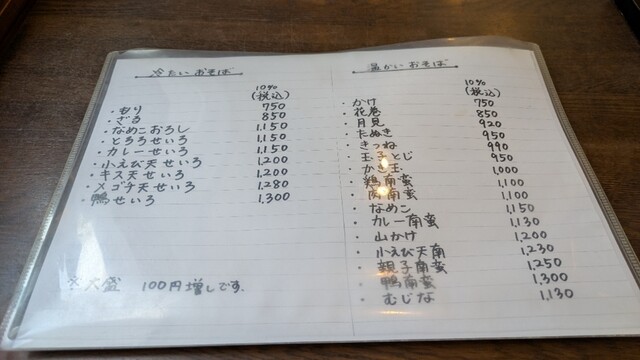 冷たいおそば
10%
(税込)
・もり 750
・ざる 850
・なめこおろし 1,150
・とろろせいろ 1,150
・カレーせいろ 1,150
・小えび天せいろ 1,200
・キス天せいろ 1,200
・メゴチ天せいろ 1,280
・鴨せいろ 1,300
※大盛 100円増しです.
温かいおそば
10%
(税込)
・かけ 750
・花巻 850
・月見 920
・たぬき 950
・きつね 990
・玉子とじ 950
・かき玉 1,000
・鶏南蛮 1,100
・肉南蛮 1,100
・なめこ 1,150
・カレー南蛮 1,130
・山かけ 1,200
・小えび天南 1,230
・親子南蛮 1,250
・鴨南蛮 1,300
・むじな 1,130